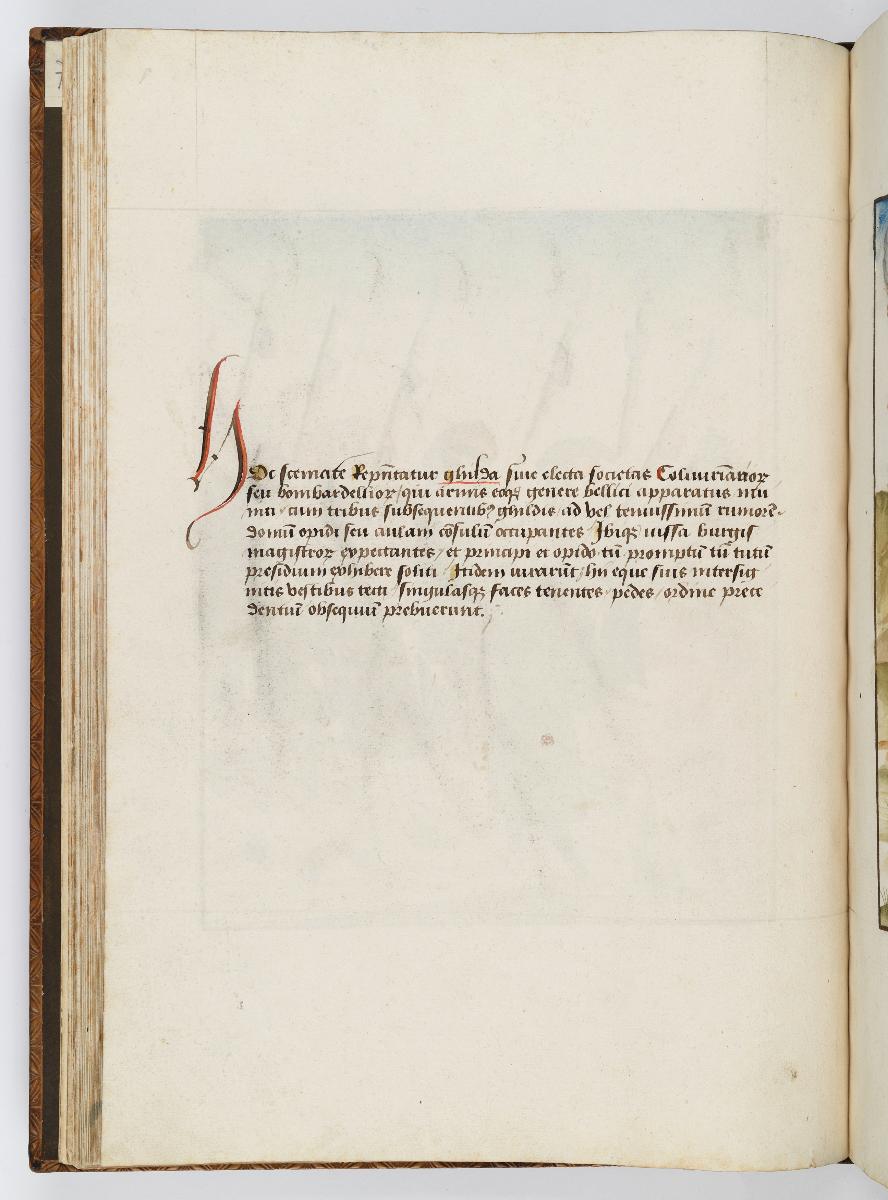 HOc scemate Rep̃ntatur ghilda siue electa societas Coliuuriãrioꝝ
seu bombardellioꝝ / qui armis eoqꝫ genere bellici apparatus mu
niti / cum tribus subsequentibꝫ ghildis / ad vel tenuissimũ rumorẽ /
domũ opidi seu aulam cõsulũ occupantes / Ibiqꝫ iussa burgis
magistroꝝ expectantes / et principi et opido tũ promptũ tũ tutũ
presidium exhibere soliti / Itidem iurarũt / hii eque suis intersig
niis vestibus tecti / singulasqꝫ faces tenentes / pedes / ordine prece
dentium obsequiũ prebuerunt.